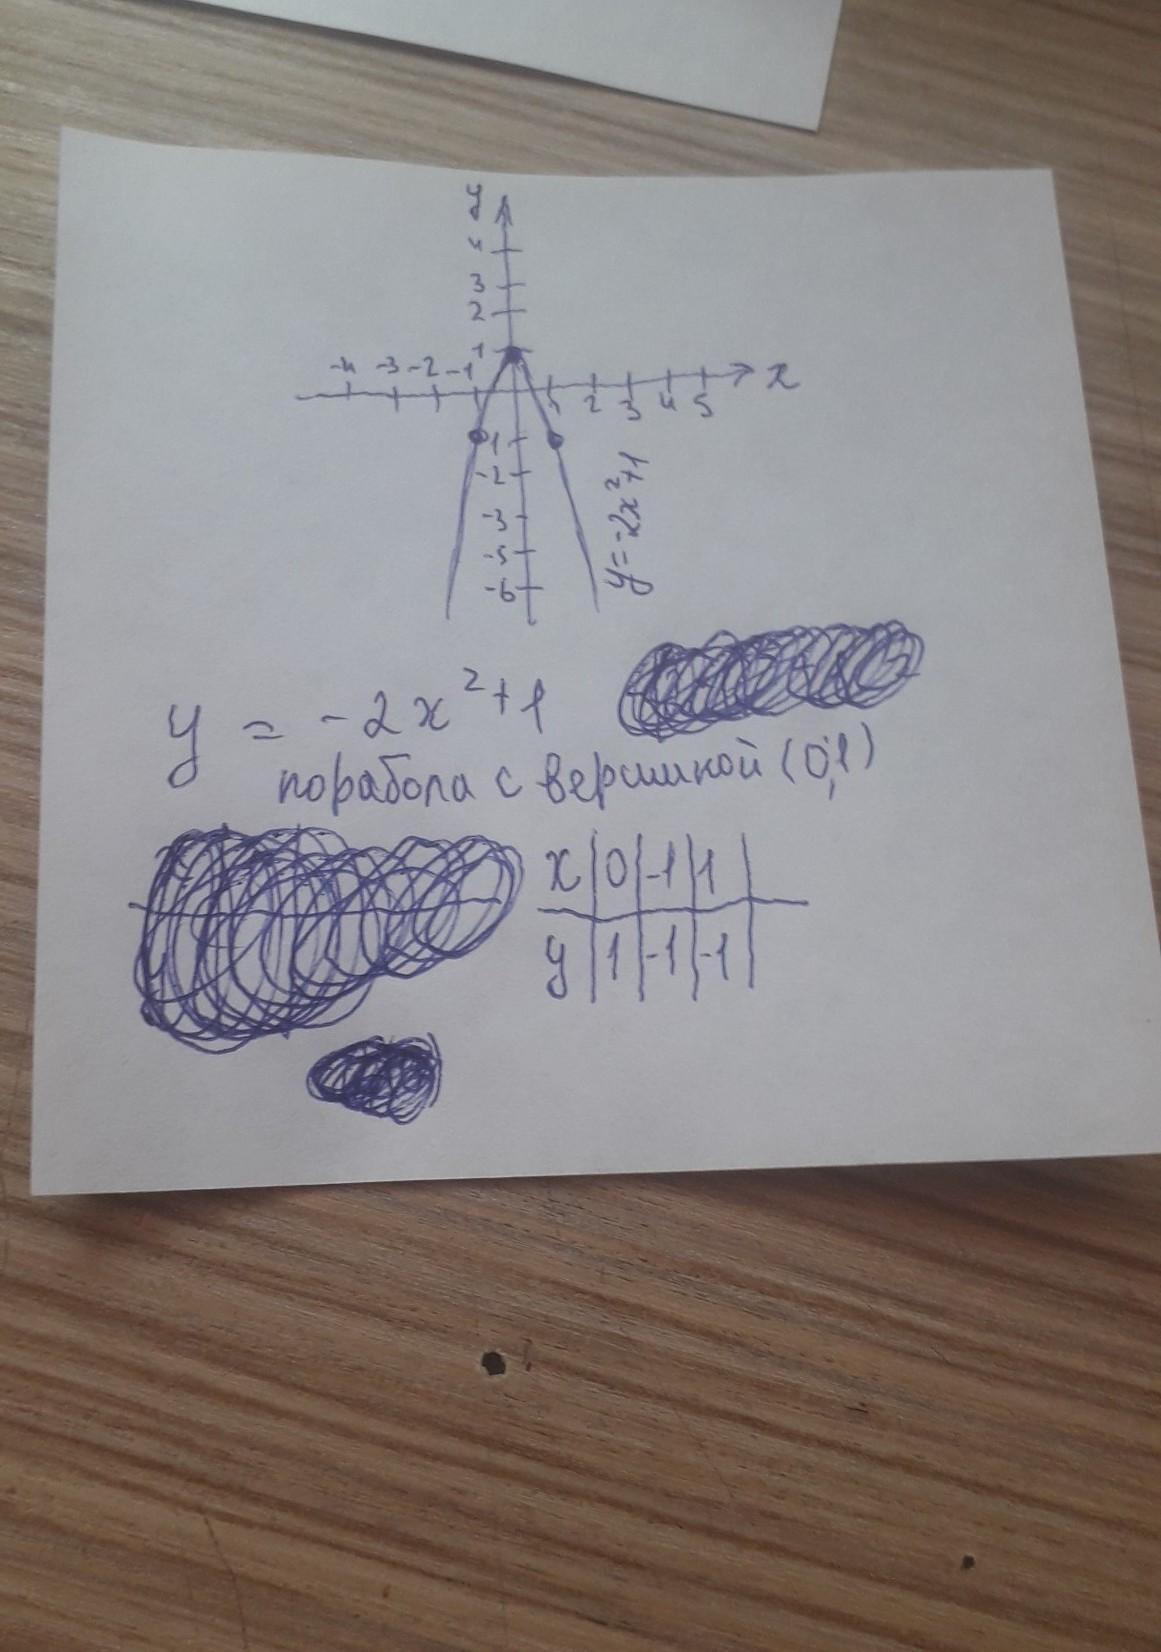 y
4
3
2
1
-4 -3 -2 -1
x
1 2 3 4 5
-1
-2
-3
-5
-6
y=-2x²+1
y = -2x²+1
порабола с вершиной (0;1)
x | 0 | -1 | 1 |
y | 1 | -1 | -1 |